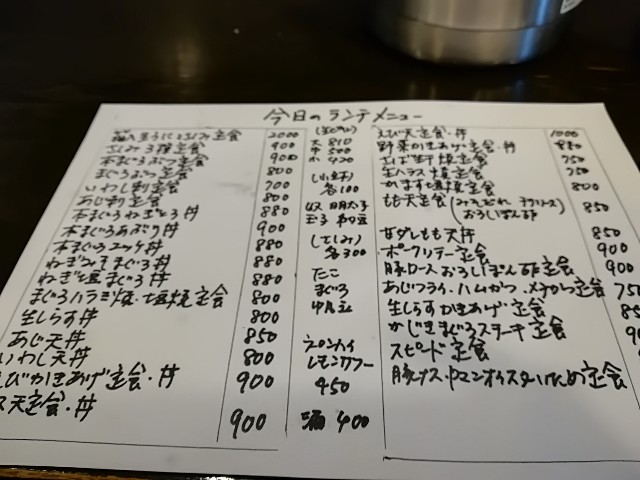 今日のランチメニュー
さしみ定食 2000
さしみ3種定食 900
本まぐろぶつ定食 900
まぐろぶつ定食 800
いわし刺定食 700
あじ刺定食 800
本まぐろねぎとろ丼 880
本まぐろあぶり丼 900
本まぐろユッケ丼 880
ねぎみそまぐろ丼 880
ねぎ塩まぐろ丼 880
まぐろハラミ焼・塩焼定食 800
生しらす丼 800
あじ天丼 850
いわし天丼 800
えびかきあげ定食・丼 900
天定食・丼 900
大 810
中 500
小 420
(小鉢)
各100
奴 明太子
玉子 納豆
(さしみ)
各300
たこ
まぐろ
甲いか
ウーロンハイ
レモンサワー
450
酒 400
えび天定食・丼 1000
野菜かきあげ定食・丼 880
さば干焼定食 750
生ハラス焼定食 750
かます塩焼定食 800
もも天定食(みそだれ
おろしぽん酢 850
甘ダレもも天丼 850
ポークソテー定食 900
豚ロースおろしぽん酢定食 900
あじフライ・ハムかつ・メンチかつ定食 750
生しらすかきあげ定食
かじきまぐろステーキ定食
スピード定食
豚ナス・ピーマンオイスターいため定食